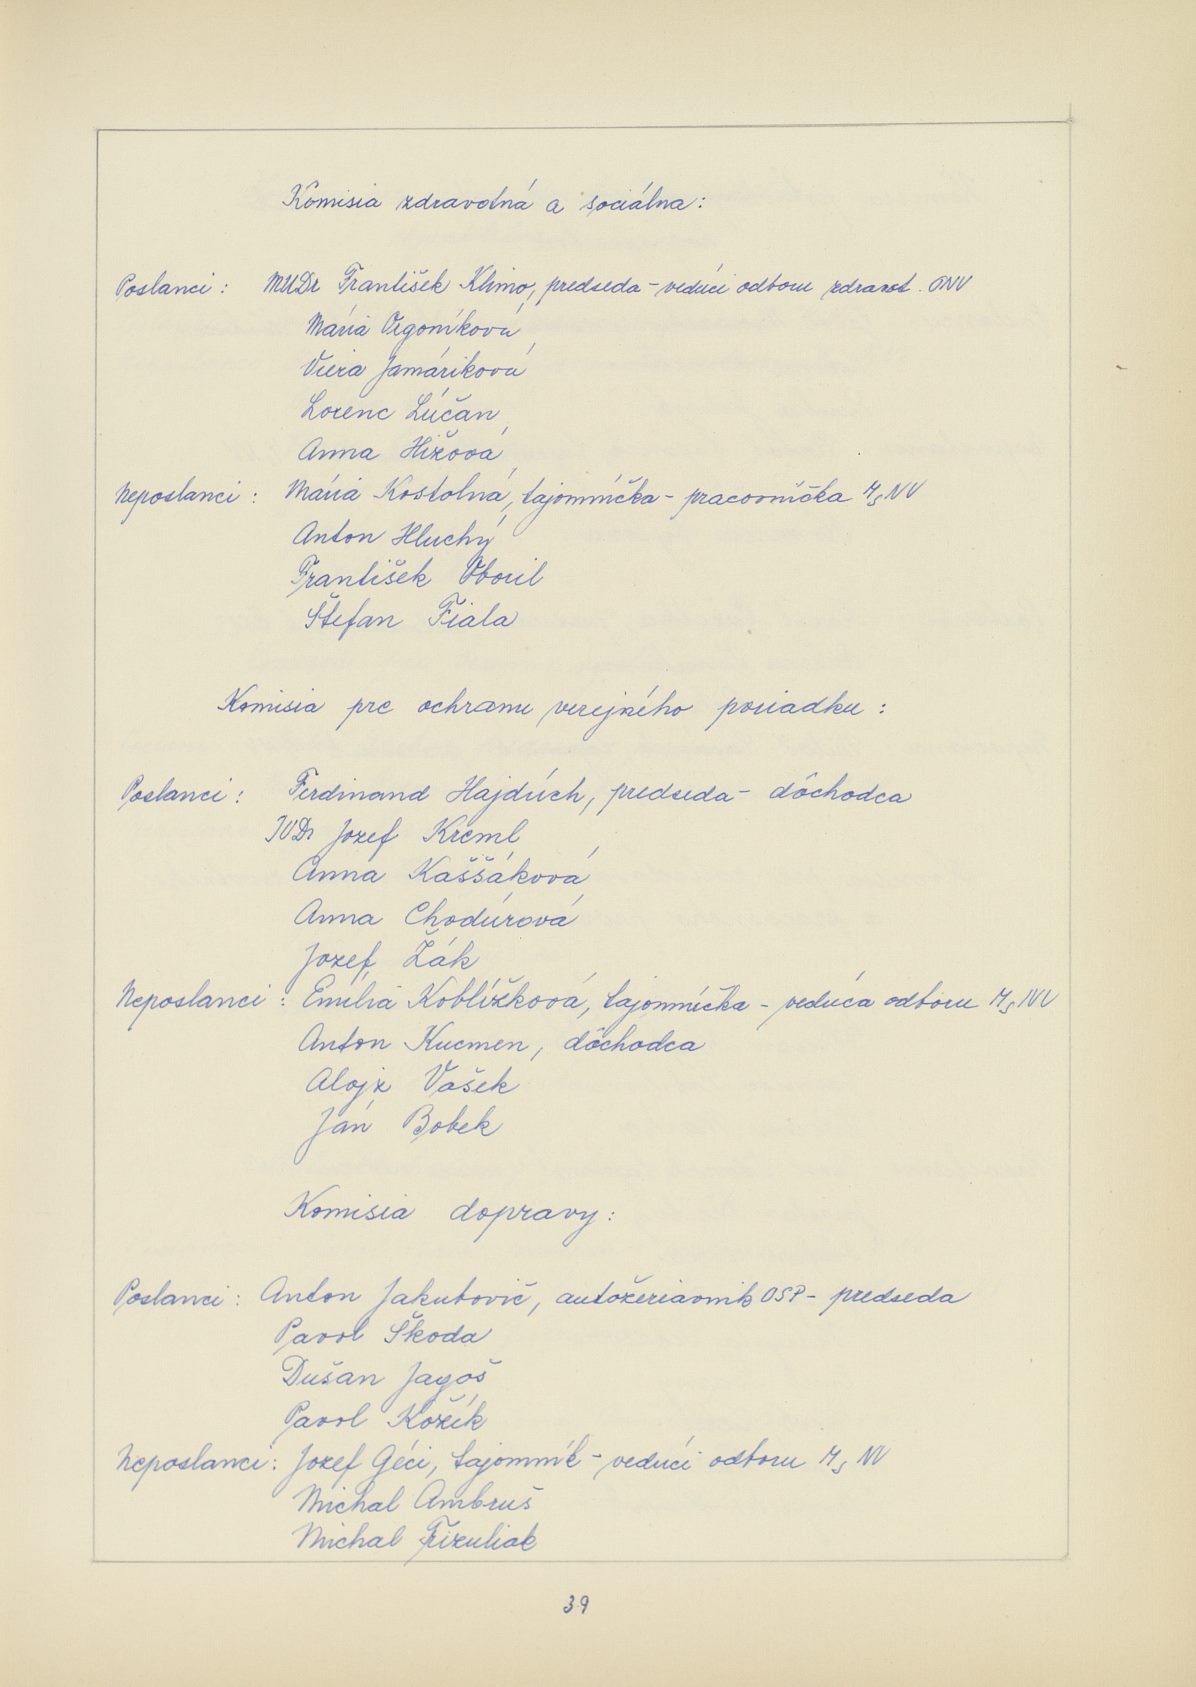 Komisia zdravotná a sociálna:
Poslanci: MUDr František Klimo, predseda - vedúci odboru zdravot. ONV
Mária Orgoníková
Viera Jamáriková
Lorenc Lúčan
Anna Hižová
Neposlanci: Mária Kostolná, tajomníčka - pracovníčka MsNV
Anton Hluchý
František Oboril
Štefan Fiala
Komisia pre ochranu verejného poriadku:
Poslanci: Ferdinand Hajdúch, predseda - dôchodca
JUDr Jozef Kreml
Anna Kaššáková
Anna Chodúrová
Jozef Žák
Neposlanci: Emília Koblížková, tajomníčka - vedúca odboru MsNV
Anton Kucmen, dôchodca
Alojz Vašek
Ján Bobek
Komisia dopravy:
Poslanci: Anton Jakubovič, autožeriavnik OSP - predseda
Pavol Škoda
Dušan Jagoš
Pavol Kožík
Neposlanci: Jozef Géci, tajomník - vedúci odboru MsNV
Michal Ambruš
Michal Fizuliak
39